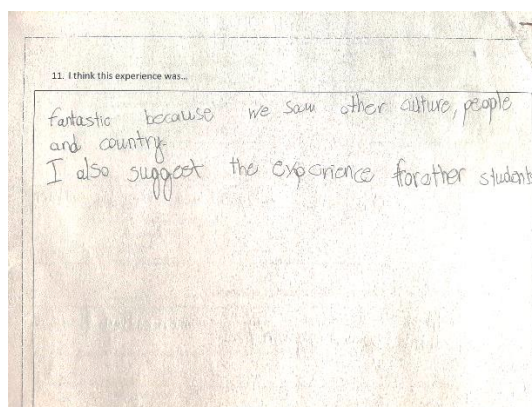 11. I think this experience was...
fantastic because we saw other culture, people
and country.
I also suggest the experience for other students